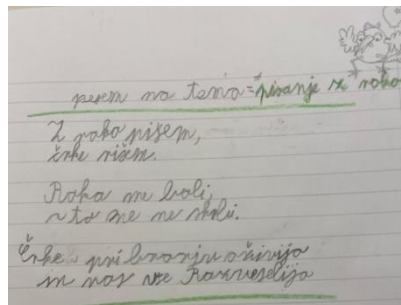 pesem na temo = pisanje z roko
Z roko pišem,
črke rišem.
Roka me boli,
to me ne skrbi.
Črke pri branju oživijo
in nas vse Razveselijo